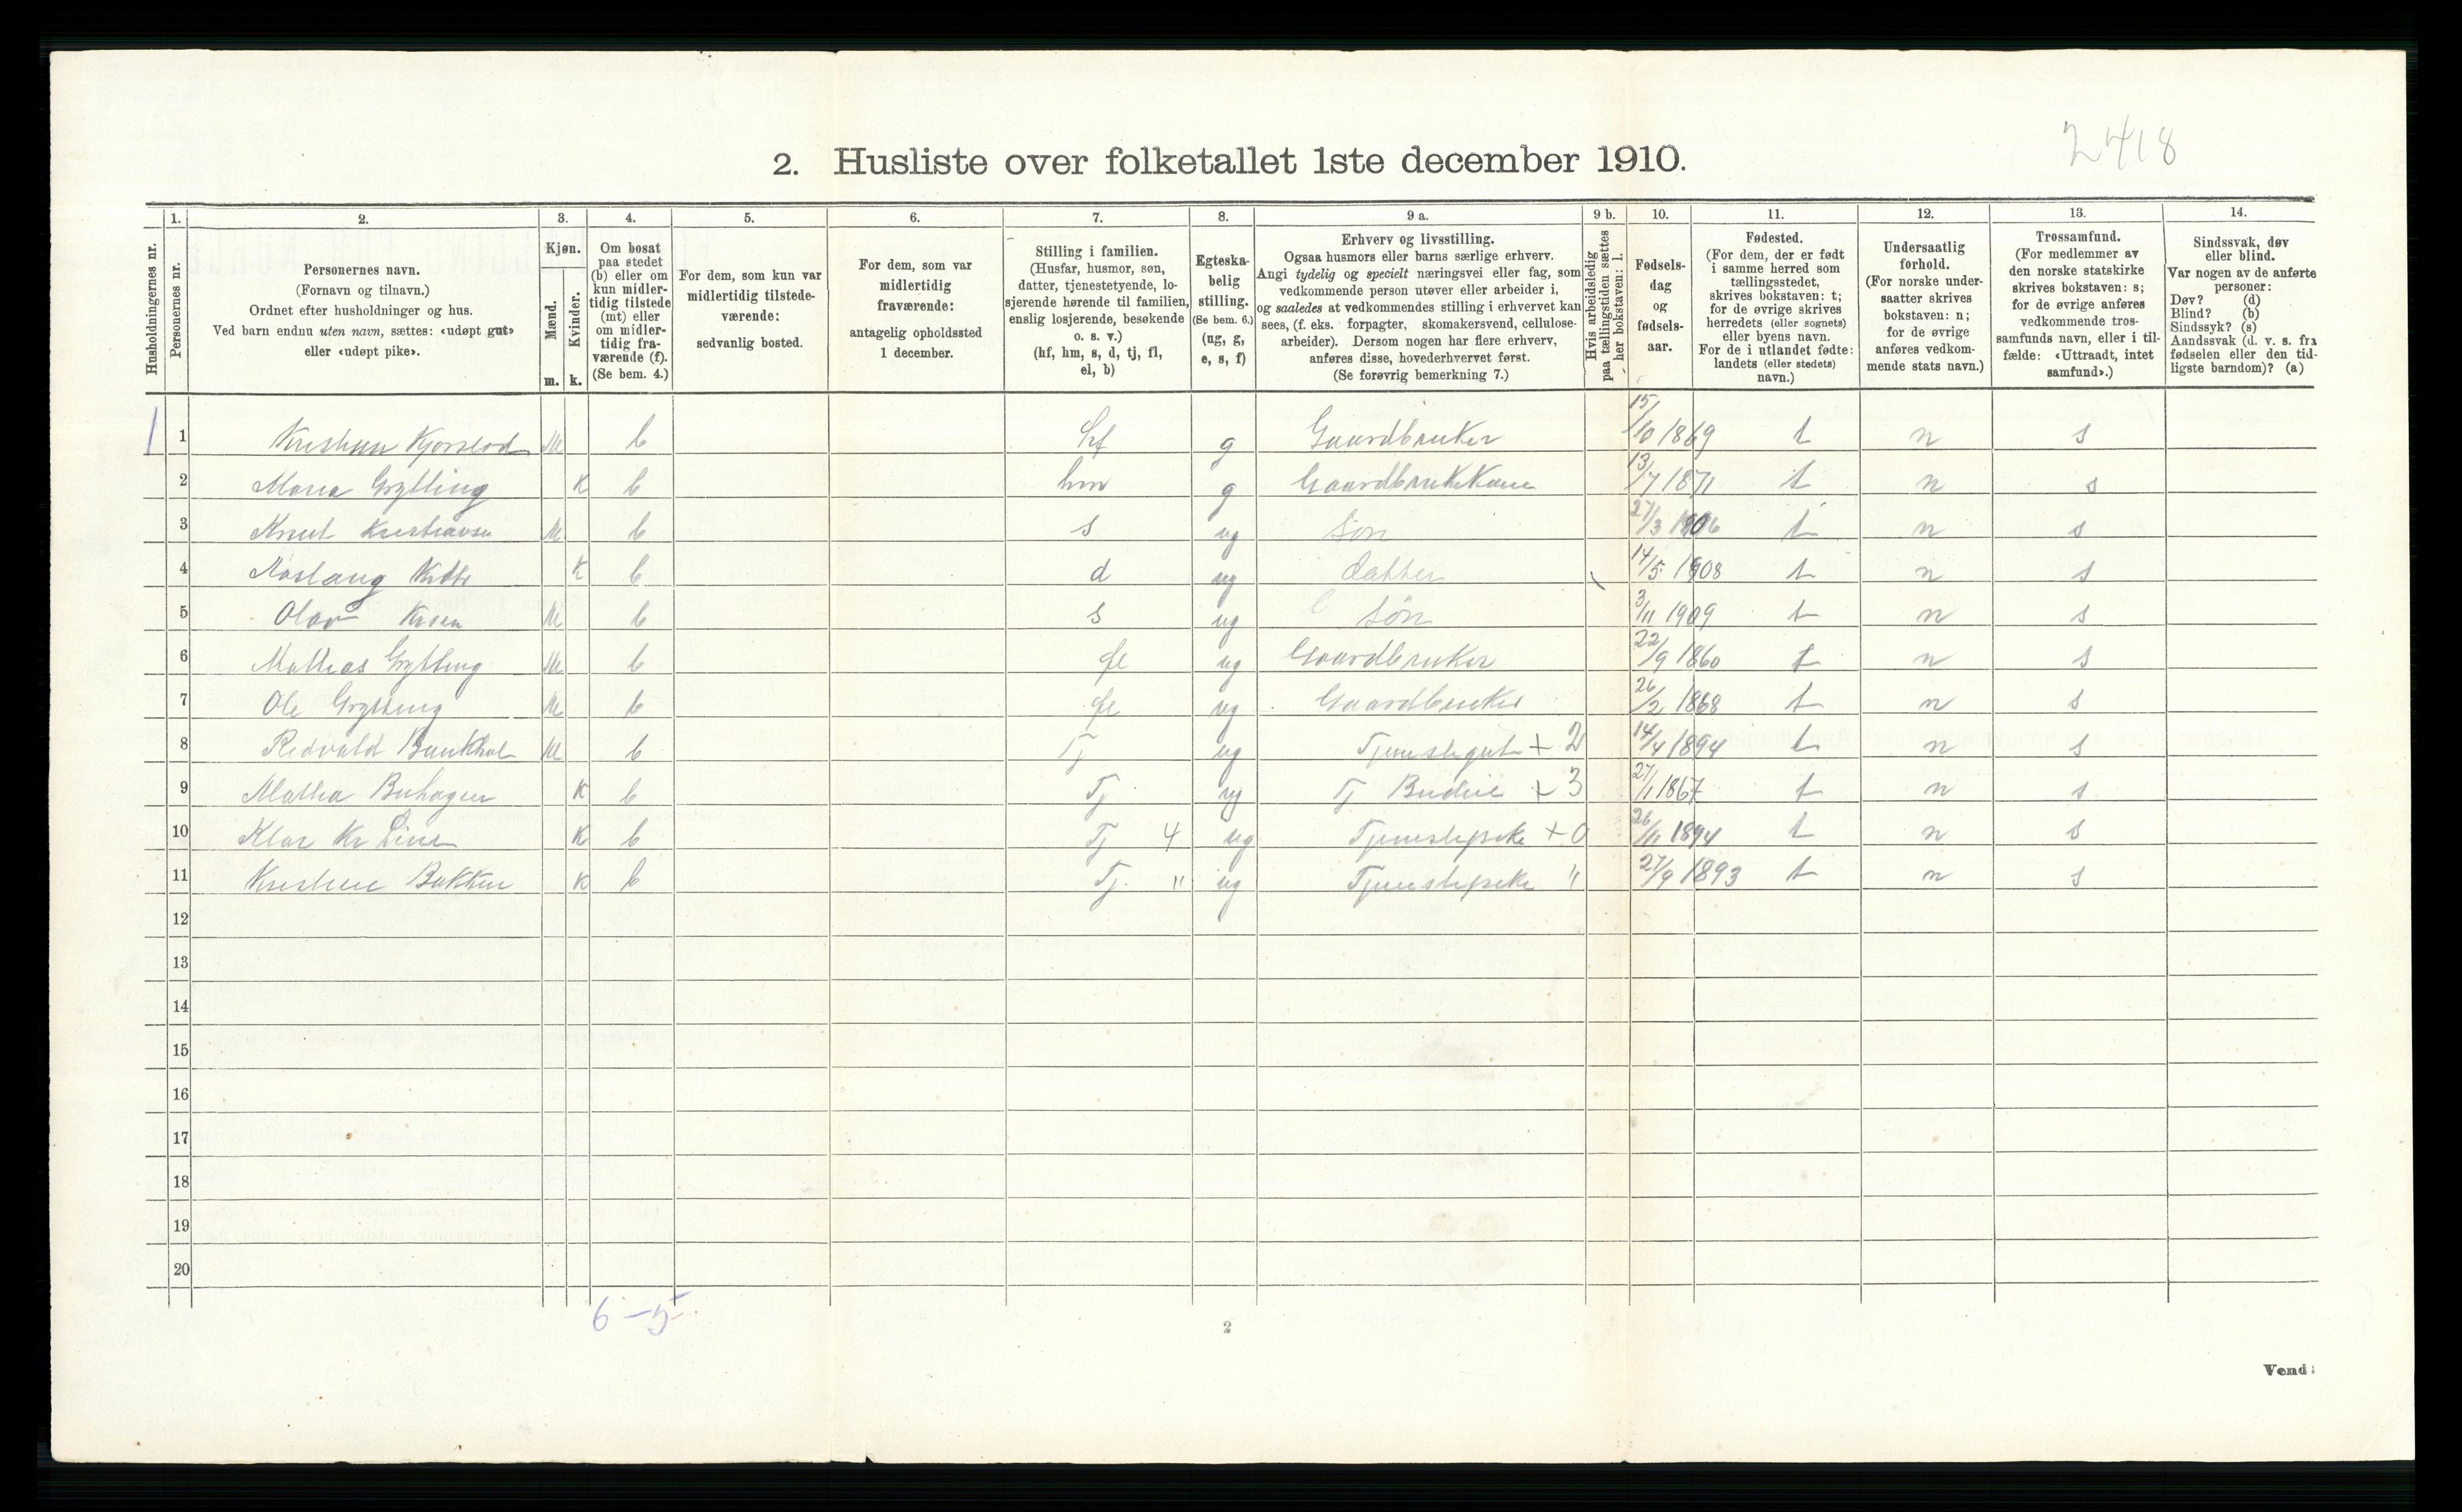 2418
2. Husliste over folketallet 1ste december 1910.
1. 2. 3. 4. 5. 6. 7. 8. 9 a. 9 b. 10. 11. 12. 13. 14.
Husholdningernes nr.
Personernes nr.
Personernes navn.
(Fornavn og tilnavn.)
Ordnet efter husholdninger og hus.
Ved barn endnu uten navn, sættes: «udøpt gut»
eller «udøpt pike».
Kjøn.
Mænd.
Kvinder.
m. k.
Om bosat
paa stedet
(b) eller om
kun midler-
tidig tilstede
(mt) eller
om midler-
tidig fra-
værende (f).
(Se bem. 4.)
For dem, som kun var
midlertidig tilstede-
værende:
sedvanlig bosted.
For dem, som var
midlertidig
fraværende:
antagelig opholdssted
1 december.
Stilling i familien.
(Husfar, husmor, søn,
datter, tjenestetyende, lo-
sjerende hørende til familien,
enslig losjerende, besøkende
o. s. v.)
(hf, hm, s, d, tj, fl,
el, b)
Egteska-
belig
stilling.
(Se bem. 6.)
(ug, g,
e, s, f)
Erhverv og livsstilling.
Ogsaa husmors eller barns særlige erhverv.
Angi tydelig og specielt næringsvei eller fag, som
vedkommende person utøver eller arbeider i,
og saaledes at vedkommendes stilling i erhvervet kan
sees, (f. eks. forpagter, skomakersvend, cellulose-
arbeider). Dersom nogen har flere erhverv,
anføres disse, hovederhvervet først.
(Se forøvrig bemerkning 7.)
Hvis arbeidsledig
paa tællingstiden sættes
her bokstaven: l.
Fødsels-
dag
og
fødsels-
aar.
Fødested.
(For dem, der er født
i samme herred som
tællingsstedet,
skrives bokstaven: t;
for de øvrige skrives
herredets (eller sognets)
eller byens navn.
For de i utlandet fødte:
landets (eller stedets)
navn.)
Undersaatlig
forhold.
(For norske under-
saatter skrives
bokstaven: n;
for de øvrige
anføres vedkom-
mende stats navn.)
Trossamfund.
(For medlemmer av
den norske statskirke
skrives bokstaven: s;
for de øvrige anføres
vedkommende tros-
samfunds navn, eller i til-
fælde: «Uttraadt, intet
samfund».)
Sindssvak, døv
eller blind.
Var nogen av de anførte
personer:
Døv? (d)
Blind? (b)
Sindssyk? (s)
Aandssvak (d. v. s. fra
fødselen eller den tid-
ligste barndom)? (a)
1 1 M b hf g Gaardbruker 15/10 1869 t n s
2 Maria Grytting K b hm g 13/7 1871 t n s
3 Knut M b s ug Søn 27/3 1906 t n s
4 Aaslaug K b d ug datter 14/5 1908 t n s
5 Olav M b s ug Søn 3/11 1909 t n s
6 Mathias Grytting M b fl ug Gaardbruker 22/9 1860 t n s
7 Ole Grytting M b fl ug Gaardbruker 26/2 1868 t n s
8 M b Tj ug Tjenestegut + 2 14/4 1894 t n s
9 K b Tj ug Tj Budeie + 3 27/1 1867 t n s
10 K b Tj 4 ug Tjenestepike + 0 26/11 1894 t n s
11 Bakken K b Tj. " ug Tjenestepike " 27/9 1893 t n s
12
13
14
15
16
17
18
19
20
6 – 5
2
Vend!